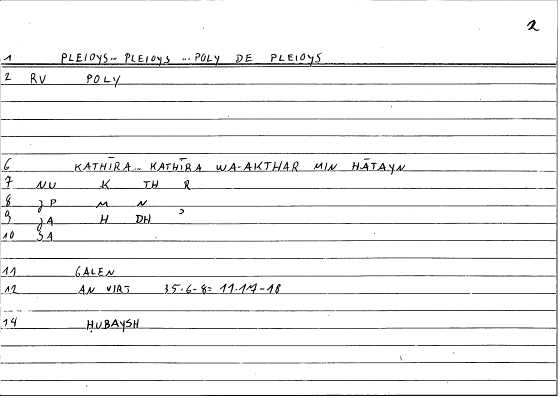 2
1 PLEIOYS... PLEIOYS ... POLY DE PLEIOYS
2 RV POLY
6 KATHĪRA... KATHĪRA WA-AKTHAR MIN HĀTAYN
7 NU K TH R
8 JP M N
9 JA H DH ʾ
10 JA
11 GALEN
12 AN VIRT 35.6-8= 11.17-18
14 ḤUBAYSH